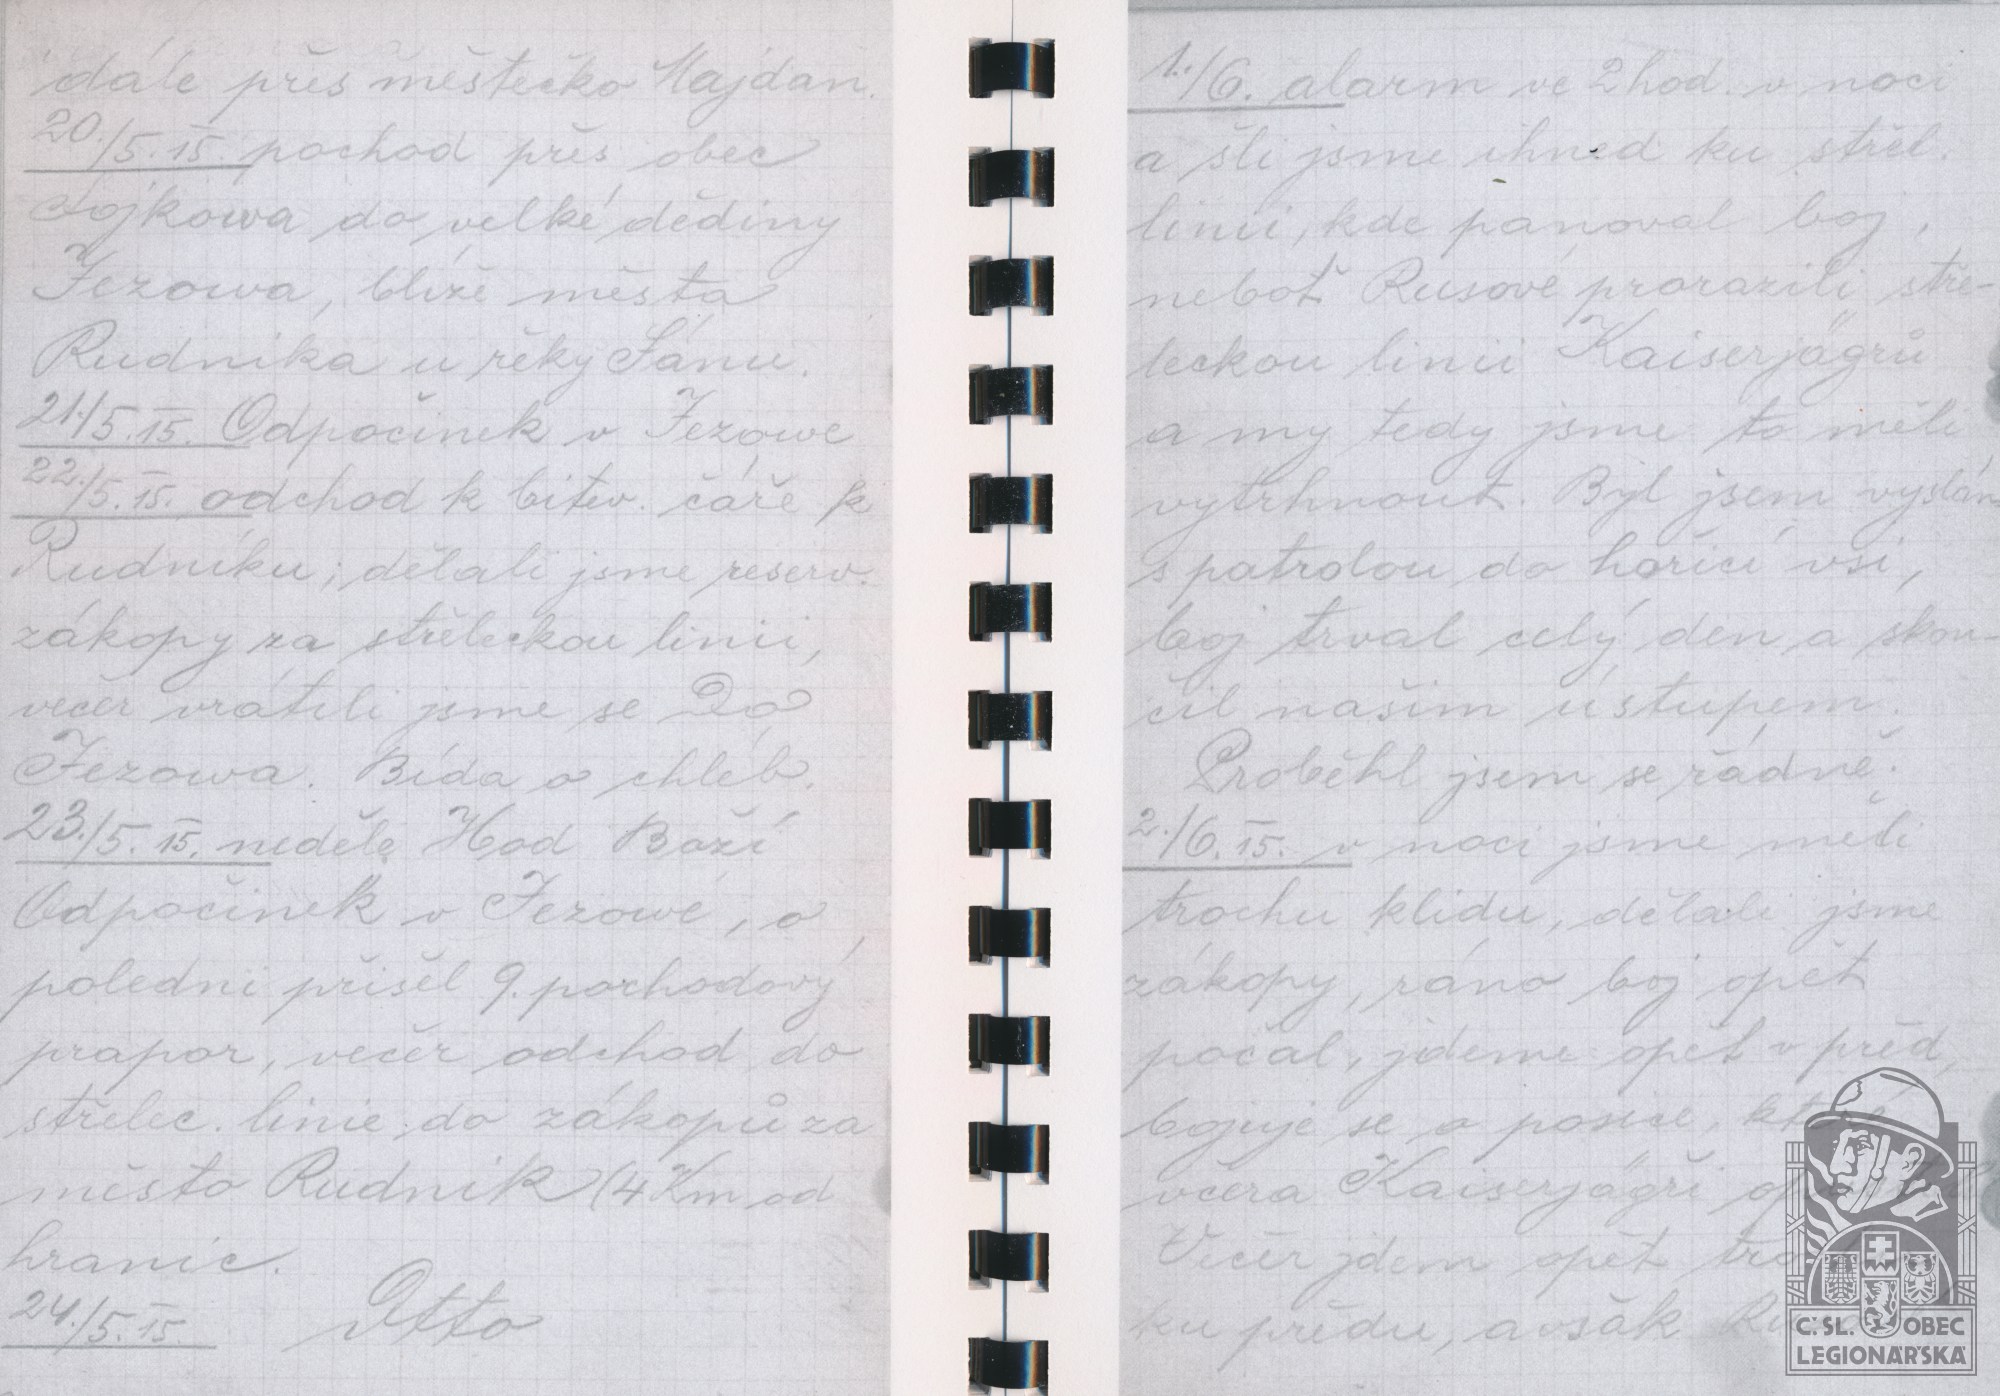 dále přes městečko Majdan.
20./5.15. pochod přes obec
Cojkowa do velké dědiny
Jezowa, blíže města
Rudnika u řěky Sánu.
21./5.15. Odpočinek v Jezowe
22./5.15. odchod k bitev. čáře k
Rudniku; dělali jsme reserv.
zákopy za střeleckou linii,
večer vrátili jsme se Do
Jezowa. Bída o chléb.
23./5.15. neděle Hod Boží
Odpočinek v Jezowe, o
poledni přišel 9. pochodový
prapor, večer odchod do
střelec. linie do zákopů za
město Rudnik (4 Km od
hranic.
24./5.15. Otto
1./6. alarm ve 2 hod. v noci
a šli jsme ihned ku střel.
linii, kde panoval boj,
neboť Rusové prorazili stře-
leckou linii Kaiserjägrů
a my tedy jsme to měli
vytrhnout. Byl jsem vyslán
s patrolou do hořící vsi,
boj trval celý den a skon-
čil naším ústupem.
Proběhl jsem se řádně.
2./6.15. v noci jsme měli
trochu klidu, dělali jsme
zákopy, ráno boj opět
počal, jdeme opět v před,
bojuje se o posice, které
včera Kaiserjägři
Večer jdem opět
ku předu, avšak
Č. SL. OBEC
LEGIONÁŘSKÁ